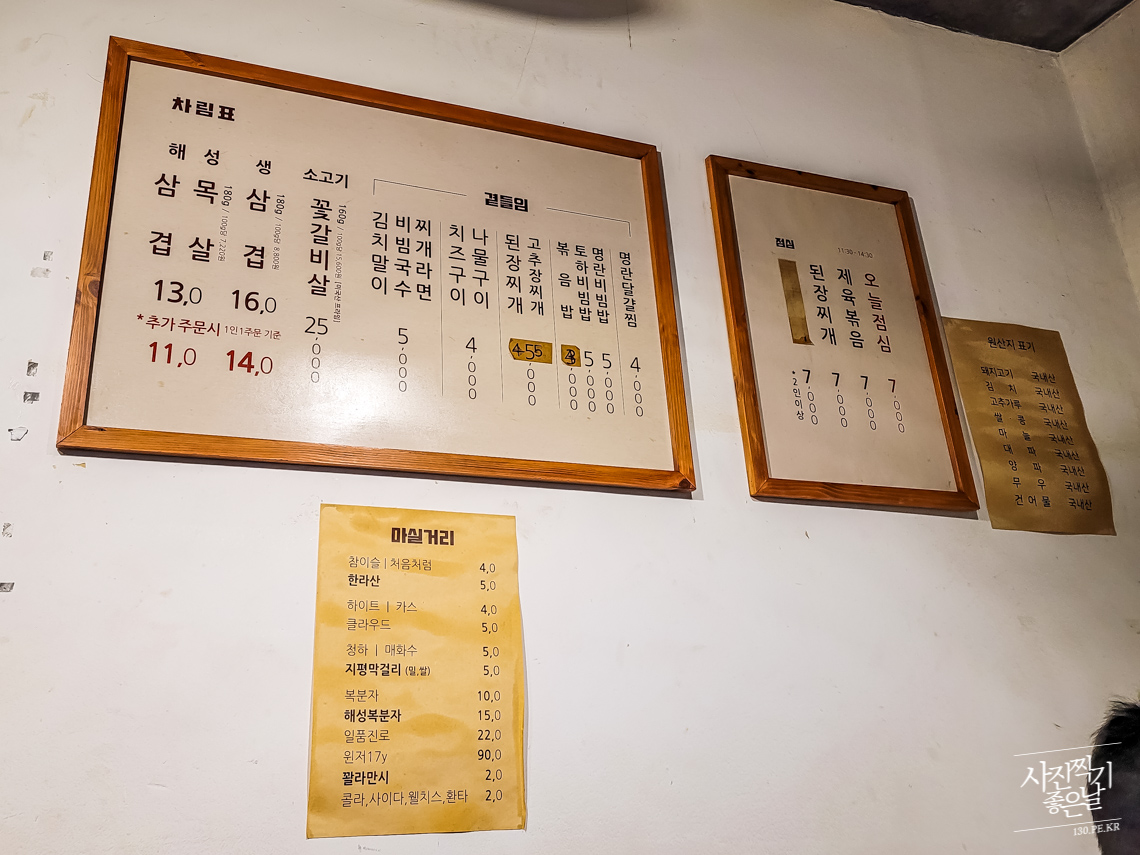 차림표
해성
삼겹 목살
180g / 100g당 7,220원
13,0
*추가 주문시
11,0
생
삼겹
180g / 100g당 8,800원
16,0
1인1주문 기준
14,0
소고기
꽃갈비살
160g / 100g당 15,600원 (미국산 프라임)
25,000
곁들임
김치말이
비빔국수
찌개라면
5,000
치즈구이
나물구이
4,000
된장찌개
고추장찌개
5,000
볶음밥
,000
토하비빔밥
5,000
명란비빔밥
5,000
명란달걀찜
4,000
점심
11:30 - 14:30
오늘점심
7,000
제육볶음
7,000
된장찌개
7,000
7,000
*2인이상
원산지 표기
돼지고기 국내산
김 치 국내산
고추가루 국내산
쌀 콩 국내산
마 늘 국내산
대 파 국내산
양 파 국내산
무 우 국내산
건어물 국내산
마실거리
참이슬 | 처음처럼 4,0
한라산 5,0
하이트 | 카스 4,0
클라우드 5,0
청하 | 매화수 5,0
지평막걸리 (밀,쌀) 5,0
복분자 10,0
해성복분자 15,0
일품진로 22,0
윈저17y 90,0
꽐라만시 2,0
콜라,사이다,웰치스,환타 2,0
사진찍기
좋은날
130.PE.KR